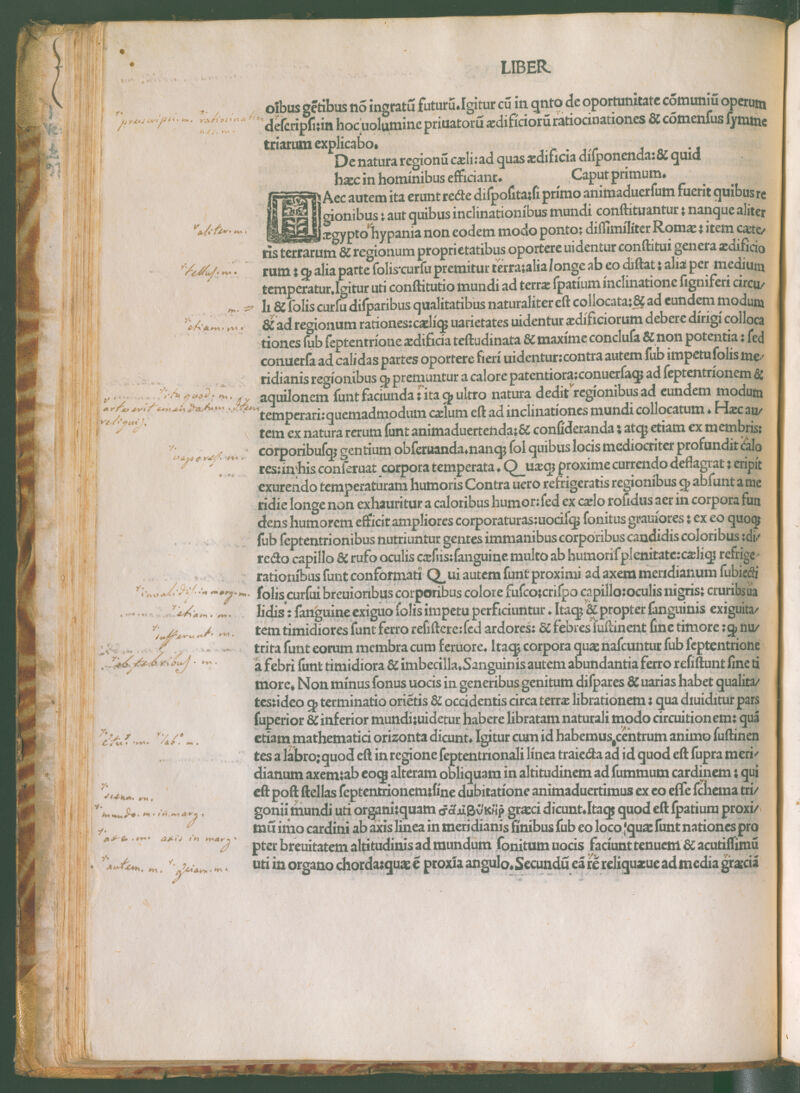 LIBER
oĩbus gẽtibus nõ ingratũ futurũ.Igitur cũ in qnto de oportunitate cõmuniũ operum
deſcripſi:in hoc uolumine priuatorũ ædificiorũ ratiocinationes & cõmenſus ſymme
triarum explicabo.
De natura regionũ cæli:ad quas ædificia diſponenda:& quid
hæc in hominibus efficiant. Caput primum.
HAec autem ita erunt recte diſpoſita:ſi primo animaduerſum fuerit quibus re
gionibus: aut quibus inclinationibus mundi conſtituantur: nanque aliter
ægypto hypania non eodem modo ponto: diſſimiliter Romæ: item cæte/
ris terrarum & regionum proprietatibus oportere uidentur conſtitui genera ædificio
rum: ꝙ alia parte ſolis curſu premitur terra:alia longe ab eo diſtat: alia per medium
temperatur.Igitur uti conſtitutio mundi ad terræ ſpatium inclinatione ſigniferi circu/
li & ſolis curſu diſparibus qualitatibus naturaliter eſt collocata:& ad eundem modum
& ad regionum rationes:cæliqꝫ uarietates uidentur ædificiorum debere dirigi colloca
tiones ſub ſeptentrione ædificia teſtudinata & maxime concluſa & non potentia: ſed
conuerſa ad calidas partes oportere fieri uidentur:contra autem ſub impetu ſolis me/
ridianis regionibus ꝙ premuntur a calore patentiora:conuerſaqꝫ ad ſeptentrionem &
aquilonem ſunt faciunda: ita ꝙ ultro natura dedit regionibus ad eundem modum
temperari:quemadmodum cælum eſt ad inclinationes mundi collocatum. Hæc au/
tem ex natura rerum ſunt animaduertenda:& conſideranda: atqꝫ etiam ex membris:
corporibuſqꝫ gentium obſeruanda.nanqꝫ ſol quibus locis mediocriter profundit calo
res:in his conſeruat corpora temperata. Quæqꝫ proxime currendo deflagrat: eripit
exurendo temperaturam humoris Contra uero refrigeratis regionibus ꝙ abſunt a me
ridie longe non exhauritur a caloribus humor:ſed ex cælo roſidus aer in corpora fun
dens humorem efficit ampliores corporaturas:uociſqꝫ ſonitus grauiores: ex eo quoqꝫ
ſub ſeptentrionibus nutriuntur gentes immanibus corporibus candidis coloribus :di/
recto capillo & rufo oculis cæſiis:ſanguine multo ab humoriſ plenitate:cæliqꝫ refrige-
rationibus ſunt conformati Qui autem ſunt proximi ad axem meridianum ſubiecti
ſolis curſui breuioribus corporibus colore fuſco:criſpo capillo:oculis nigris: cruribsua
lidis: ſanguine exiguo ſolis impetu perficiuntur. Itaqꝫ & propter ſanguinis exiguita/
tem timidiores ſunt ferro reſiſtere:ſed ardores: & febres ſuſtinent ſine timore :ꝙ nu/
trita ſunt eorum membra cum feruore. Itaqꝫ corpora quæ naſcuntur ſub ſeptentrione
a febri ſunt timidiora & imbecilla.Sanguinis autem abundantia ferro reſiſtunt ſine ti
more. Non minus ſonus uocis in generibus genitum diſpares & uarias habet qualita/
tes:ideo ꝙ terminatio oriẽtis & occidentis circa terræ librationem: qua diuiditur pars
ſuperior & inferior mundi:uidetur habere libratam naturali modo circuitionem: quã
etiam mathematici orizonta dicunt. Igitur cum id habemus centrum animo ſuſtinen
tes a labro:quod eſt in regione ſeptentrionali linea traiecta ad id quod eſt ſupra meri/
dianum axem:ab eoqꝫ alteram obliquam in altitudinem ad ſummum cardinem: qui
eſt poſt ſtellas ſeptentrionem:ſine dubitatione animaduertimus ex eo eſſe ſchema tri/
gonii mundi uti organi:quam græci dicunt.Itaqꝫ quod eſt ſpatium proxi/
mũ imo cardini ab axis linea in meridianis finibus ſub eo loco quæ ſunt nationes pro
pter breuitatem altitudinis ad mundum ſonitum uocis faciunt tenuem & acutiſſimũ
uti in organo chorda:quæ ẽ proxĩa angulo. Secundũ eã rẽ reliquæue ad media græciã
aliter. m.
tellus. m.
etiam. m.
vapores. m.
invalidis. in marg. m.
etiam. m.
sufferunt. m.
ab febribus. m.
mundo. m. in marg.
axis in marg.
autem. m.